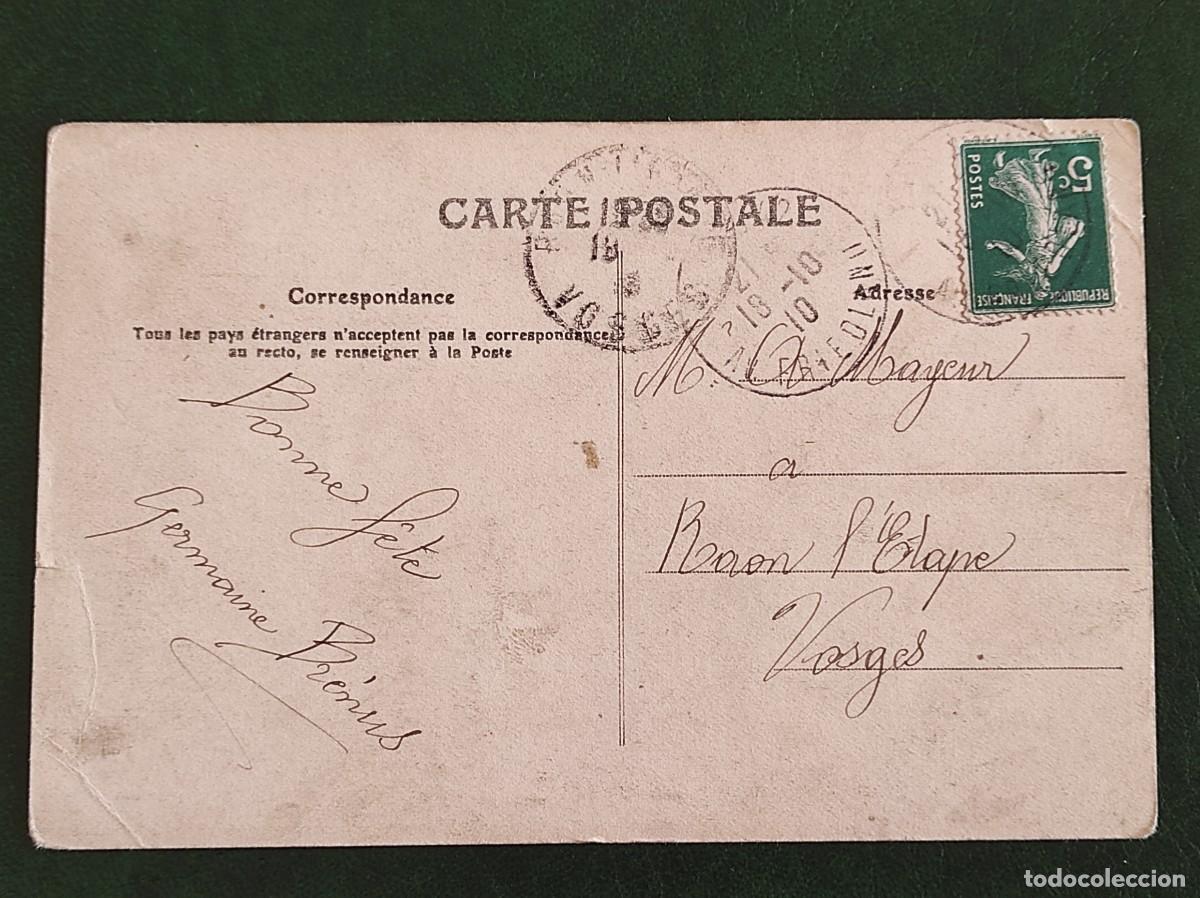 CARTE POSTALE
Correspondance
Tous les pays étrangers n'acceptent pas la correspondance
au recto, se renseigner à la Poste
Bonne fête
Germaine
Adresse
M. Ch Mayeur
a
Raon l'Etape
Vosges.
5c
POSTES
REPUBLIQUE FRANÇAISE
VOSGES
18-10
10
todocoleccion